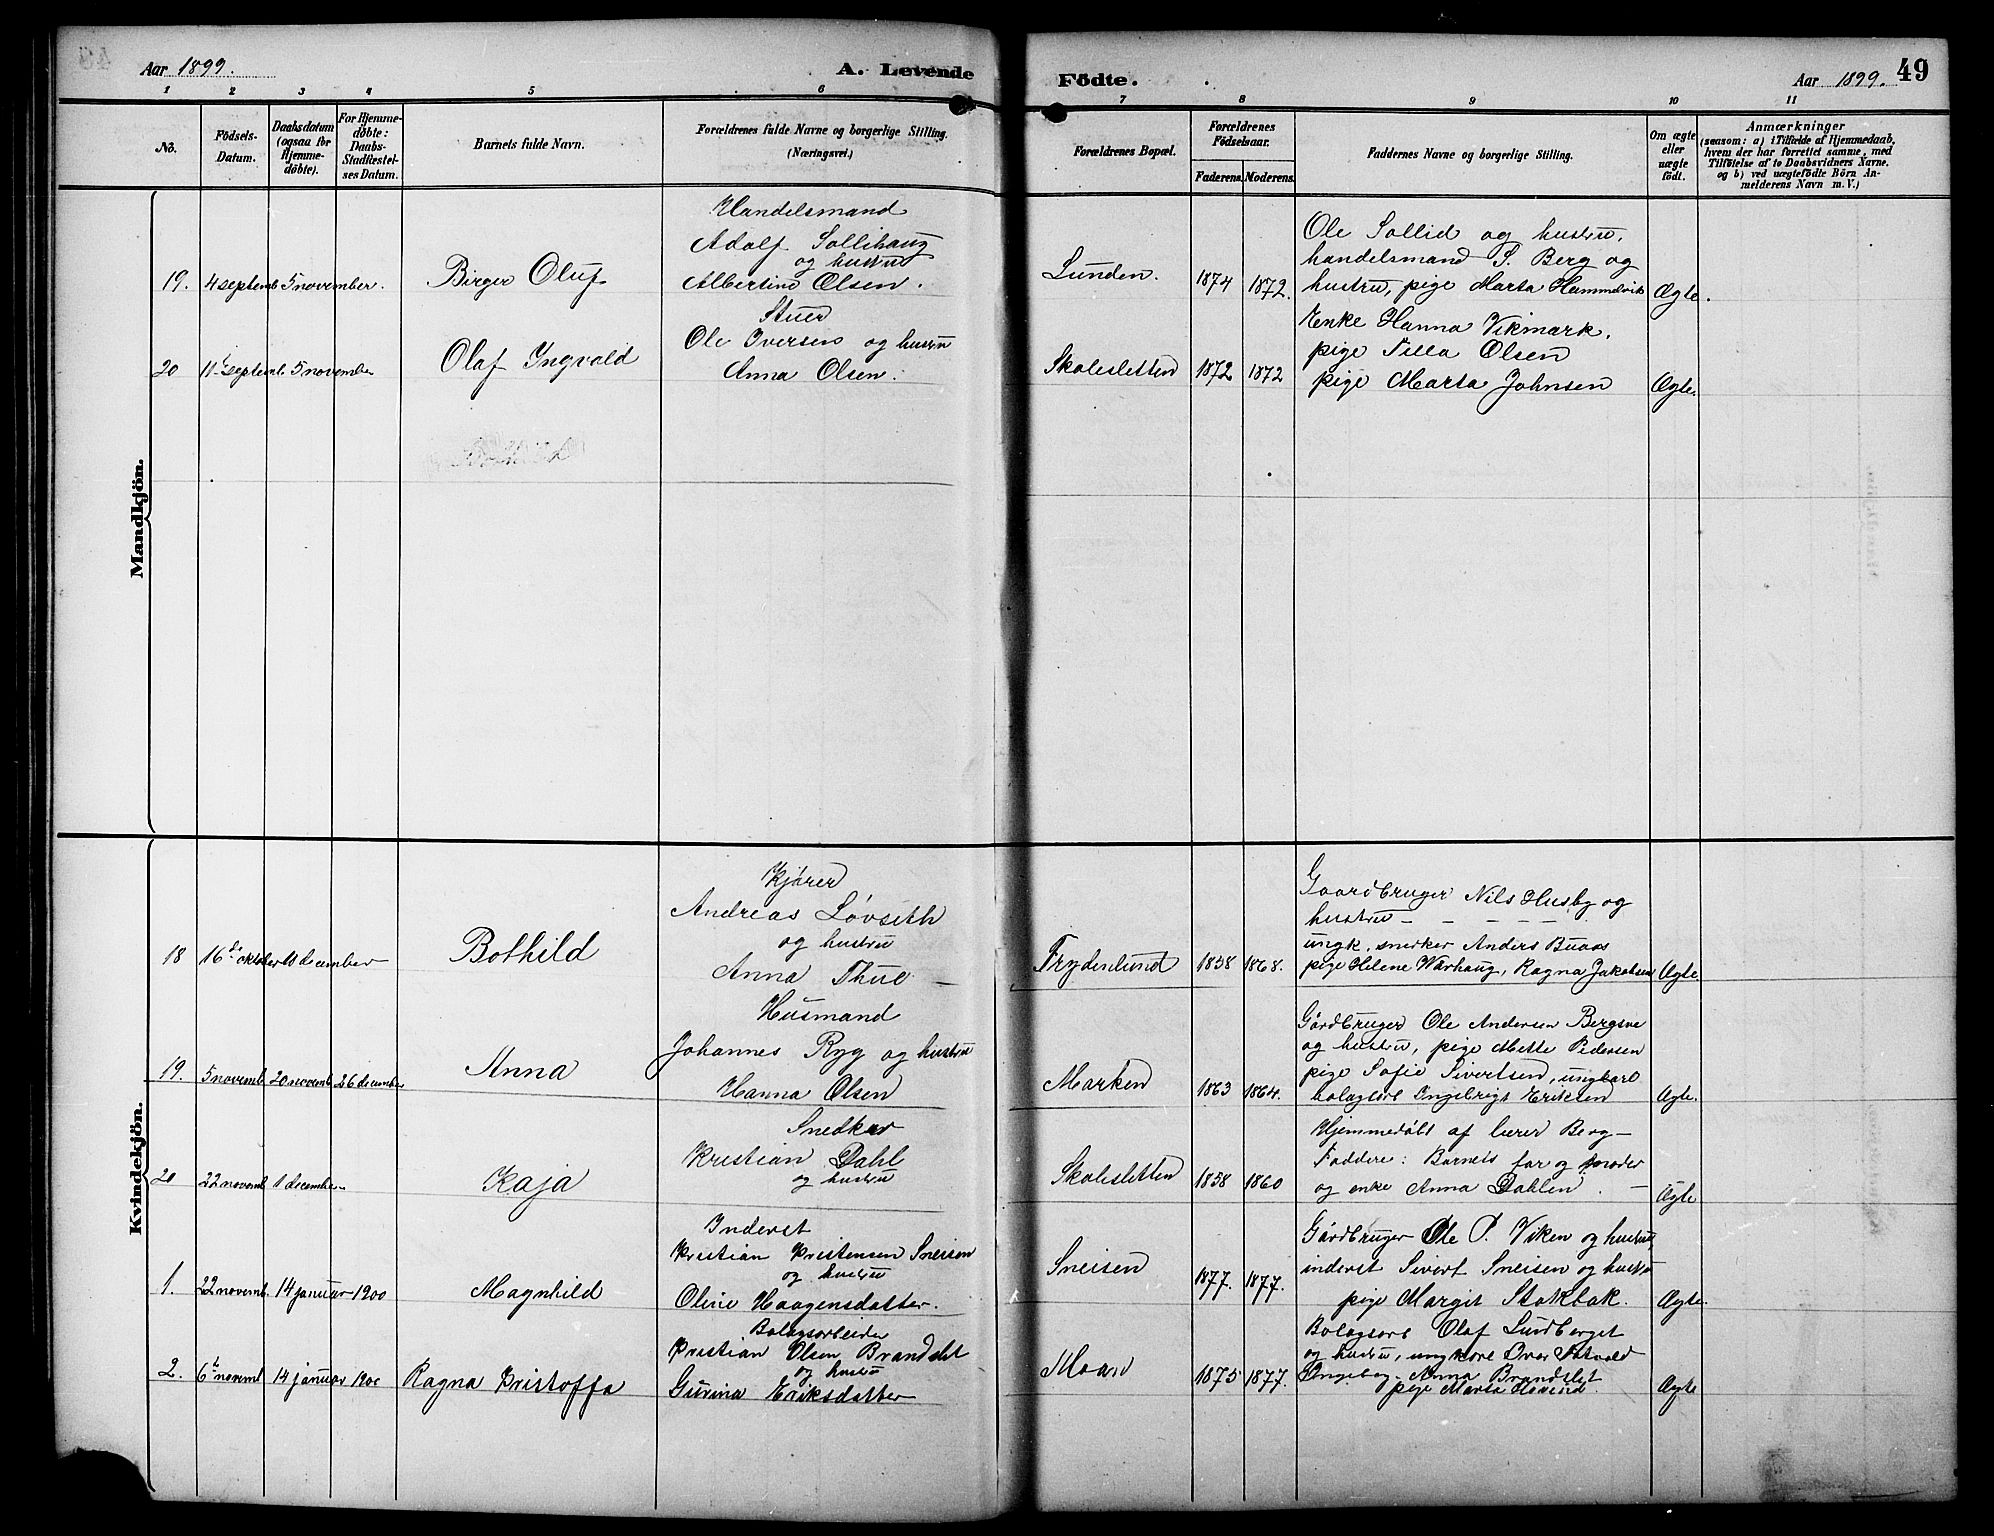 Aar 1899.
A. Levende
Födte.
Aar 1899.
49
1 2 3 4 5 6 7 8 9 10 11
No.
Födsels-
Datum.
Daabsdatum
(ogsaa for
Hjemme-
döbte).
For Hjemme-
döbte:
Daabs-
Stadfæstel-
ses Datum.
Barnets fulde Navn.
Forældrenes fulde Navne og borgerlige Stilling.
(Næringsvei.)
Forældrenes Bopæl.
Forældrenes
Födselsaar.
Faderens. Moderens.
Faddernes Navne og borgerlige Stilling.
Om ægte
eller
uægte
födt.
Anmærkninger
(saasom: a) i Tilfælde af Hjemmedaab,
hvem der har forrettet samme, med
Tilföielse af to Daabsvidners Navne.
og b) ved uægtefödte Börn An-
melderens Navn m. V.)
Mandkjön.
19. 4 septemb. 5 november.
Birger Oluf
Handelsmand
Adolf Sollihaug
og hustru
Albertine Olsen.
Lunden.
1874 1872.
Ole Sollid og hustru.
handelsmand S. Berg og
hustru, pige Marta Hammelvik
Ægte.
20 11te septemb. 5 november
Olaf Ingvald
Stuer
Ole Iversen og hustru
Anna Olsen.
Skolesletten
1872 1872
Enke Hanna Vikmark.
pige Tilla Olsen
pige Marta Johnsen
Ægte.
Kvindekjön.
18 16de oktober 10 december
Bothild
Kjører
Andreas Løvseth
og hustru
Anna Thue
Frydenlund
1858 1868.
Gaardbruger Nils Husby og
hustru - - - - -
ungk. snerker Anders Buaas
pige Helene Warhaug, Ragna Jakobsen
Ægte.
19. 5 novemb. 20 novemb. 26 december
Anna
Husmand
Johannes Ryg og hustru
Hanna Olsen
Marken
1863 1864.
Gårdbruger Ole Andersen Bergsve
og hustru, pige Mette Pedersen
pige Sofie Sivertsen, ungkarl
bolagsarb Ingebrigt Eriksen
Ægte.
20 22 novemb. 1 december
Kaja
Snedker
Kristian Dahl
og hustru
Skolesletten
1858 1860
Hjemmedøbt af lærer Berg -
Faddere: Barnets far og moder
og enke Anna Dahlen.
Ægte
1. 22 novemb. 14 januar 1900
Magnhild
Inderst
Kristian Kristensen Sneisen
og hustru
Oline Haagensdatter.
Sneisen
1877. 1877.
Gårdbruger Ole P. Viken og hustru,
inderst Sivert Sneisen og hustru
pige Margit Stokbak.
Ægte.
2. 6te novemb 14 januar 1900
Ragna Kristoffa
Bolagsarbeider
Kristian Olsen Brandslet
og hustru
Gurina Eriksdatter
Moan
1875 1877.
Bolagsarb Olaf Lundberget
og hustru, ungkarl
Anna Brandslet
pige Marta
Ægte